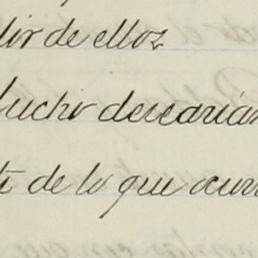 dor de ellos
Lucho desearía
de lo que ocurr